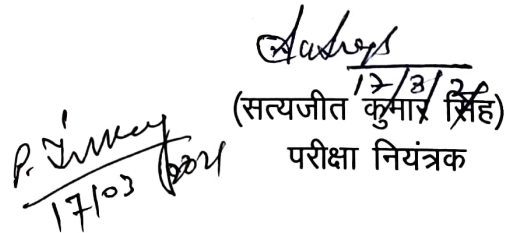 17/3/2
(सत्यजीत कुमार सिंह)
परीक्षा नियंत्रक
P.
17/03/2021